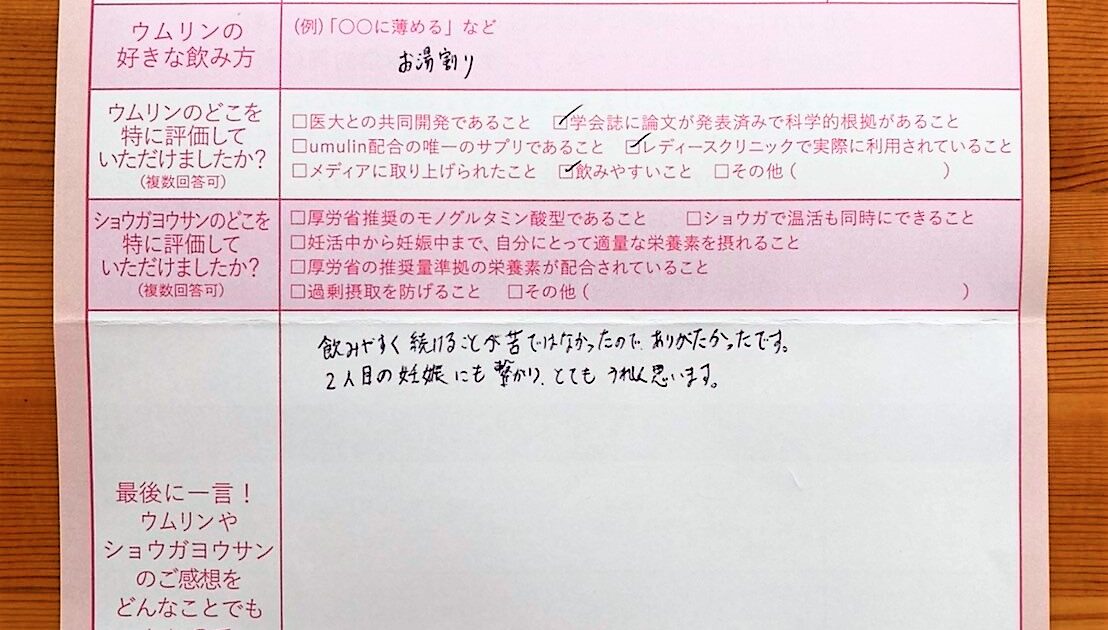 ウムリンの
好きな飲み方
(例)「〇〇に薄める」など
お湯割り
ウムリンのどこを
特に評価して
いただけましたか?
(複数回答可)
□医大との共同開発であること ☑学会誌に論文が発表済みで科学的根拠があること
□umulin配合の唯一のサプリであること ☑レディースクリニックで実際に利用されていること
□メディアに取り上げられたこと ☑飲みやすいこと □その他( )
ショウガヨウサンのどこを
特に評価して
いただけましたか?
(複数回答可)
□厚労省推奨のモノグルタミン酸型であること □ショウガで温活も同時にできること
□妊活中から妊娠中まで、自分にとって適量な栄養素を摂れること
□厚労省の推奨量準拠の栄養素が配合されていること
□過剰摂取を防げること □その他( )
飲みやすく続けることが苦ではなかったので、ありがたかったです。
2人目の妊娠にも繋がり、とてもうれしく思います。
最後に一言!
ウムリンや
ショウガヨウサン
のご感想を
どんなことでも